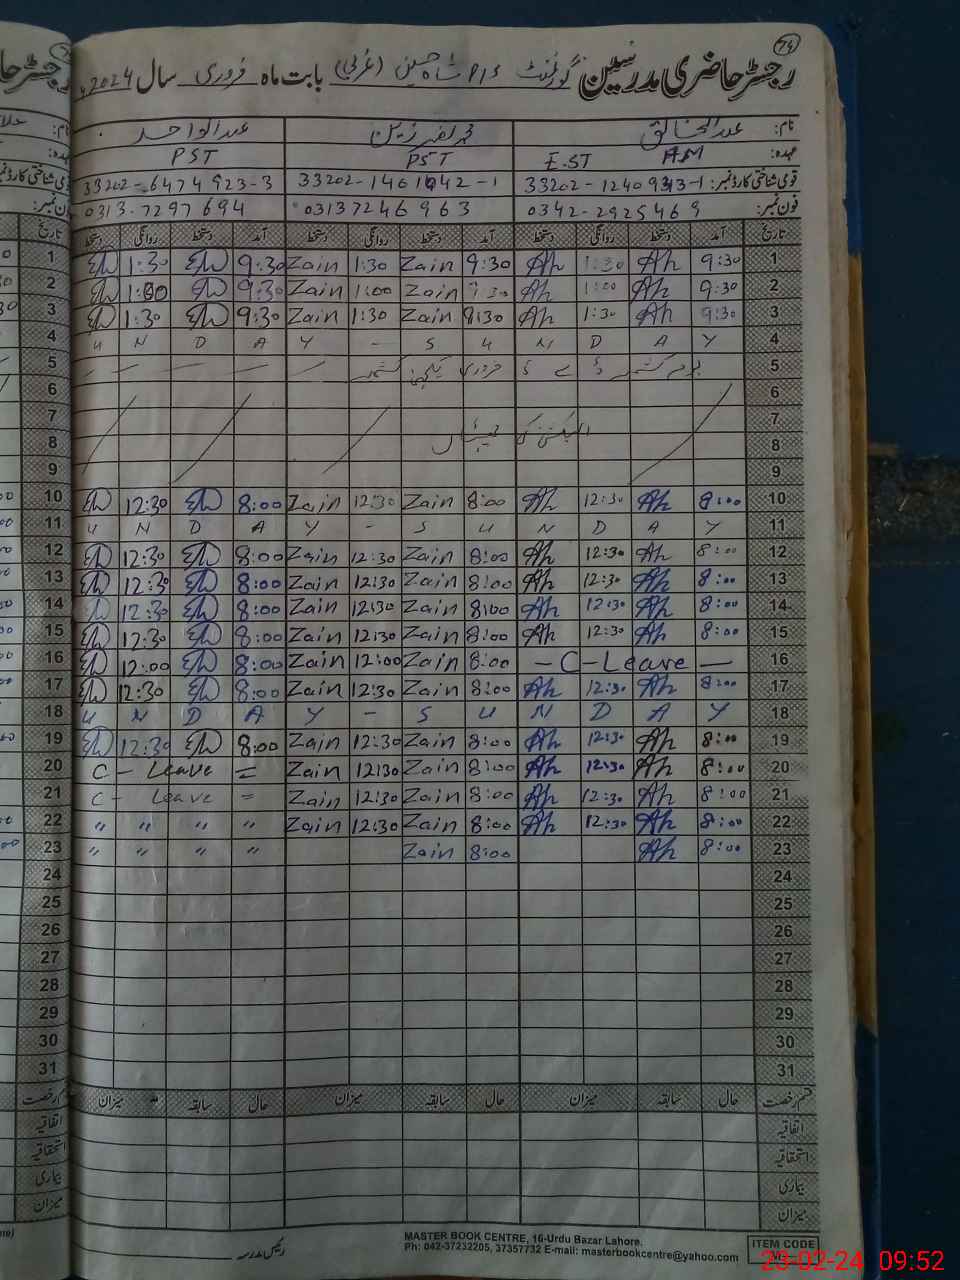 74
رجسٹر حاضری مدرسین گورنمنٹ P/S شاہ حسین (غربی) بابت ماہ فروری سال 2024
نام: عبدالخالق محمد زین عبدالواحد
عہدہ: AM E.ST PST PST
قومی شناختی کارڈ نمبر: 33202-1240943-1 33202-1461942-1 33202-6474923-3
فون نمبر: 0342-2925469 03137246963 0313-7297694
تاریخ آمد دستخط روانگی دستخط آمد دستخط روانگی دستخط آمد دستخط روانگی دستخط
1 9:30 Ah 1:30 Ah 9:30 Zain 1:30 Zain 9:30 1:30
2 9:30 Ah 1:00 Ah 9:30 Zain 1:00 Zain 9:30 1:00
3 9:30 Ah 1:30 Ah 8:30 Zain 1:30 Zain 9:30 1:30
4 Y A D N U S - Y A D N U
5 یوم کشمیر 5 فروری یکجہتی کشمیر
6
7
8 الیکشن کی چھٹیاں
9
10 8:00 Ah 12:30 Ah 8:00 Zain 12:30 Zain 8:00 12:30
11 Y A D N U S - Y A D N U
12 8:00 Ah 12:30 Ah 8:00 Zain 12:30 Zain 8:00 12:30
13 8:00 Ah 12:30 Ah 8:00 Zain 12:30 Zain 8:00 12:30
14 8:00 Ah 12:30 Ah 8:00 Zain 12:30 Zain 8:00 12:30
15 8:00 Ah 12:30 Ah 8:00 Zain 12:30 Zain 8:00 12:30
16 - C-Leave - 8:00 Zain 12:00 Zain 8:00 12:00
17 8:00 Ah 12:30 Ah 8:00 Zain 12:30 Zain 8:00 12:30
18 Y A D N U S - Y A D N U
19 8:00 Ah 12:30 Ah 8:00 Zain 12:30 Zain 8:00 12:30
20 8:00 Ah 12:30 Ah 8:00 Zain 12:30 Zain C - Leave =
21 8:00 Ah 12:30 Ah 8:00 Zain 12:30 Zain C - Leave =
22 8:00 Ah 12:30 Ah 8:00 Zain 12:30 Zain " " " "
23 8:00 Ah 8:00 Zain " " " "
24
25
26
27
28
29
30
31
قسم رخصت حال سابقہ میزان حال سابقہ میزان حال سابقہ میزان
اتفاقیہ
استحقاقیہ
بیماری
میزان
رئیس مدرسہ
MASTER BOOK CENTRE, 16-Urdu Bazar Lahore.
Ph: 042-37232205, 37357732 E-mail: masterbookcentre@yahoo.com
ITEM CODE
23-02-24 09:52